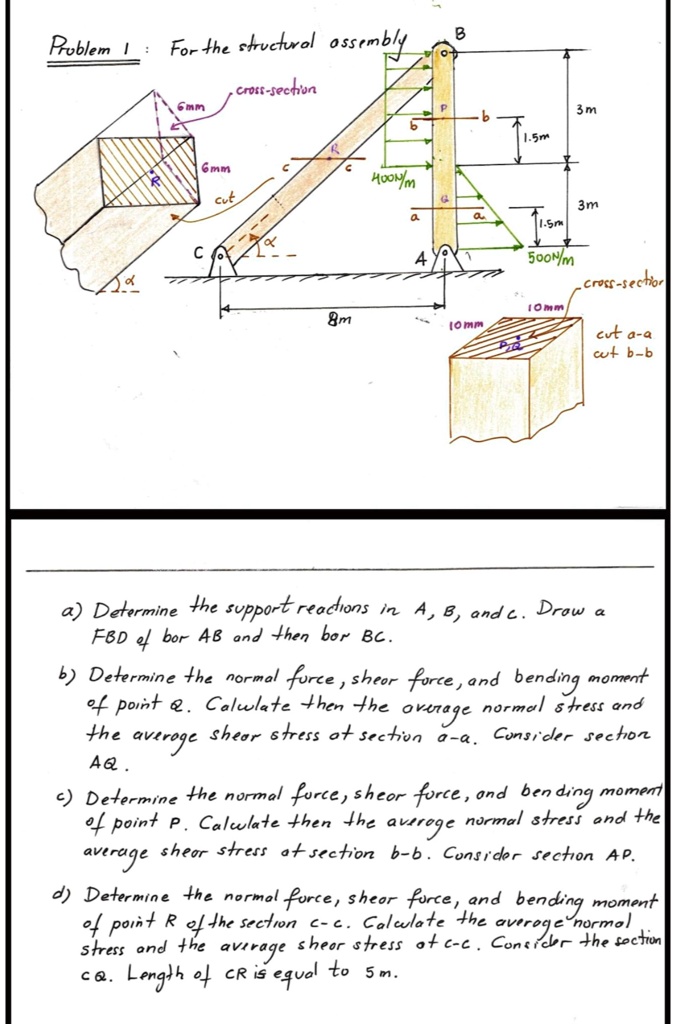 Problem 1 : For the structural assembly
B
6mm
cross-section
3m
P
b
b
1.5m
R
6mm
c
c
R
400N/m
cut
Q
3m
a
a
1.5m
α
C
A
500N/m
α
cross-section
8m
10mm
10mm
P,Q
cut a-a
cut b-b
a) Determine the support reactions in A, B, and C. Draw a
FBD of bar AB and then bar BC.
b) Determine the normal force, shear force, and bending moment
of point Q. Calculate then the average normal stress and
the average shear stress at section a-a. Consider section
AQ.
c) Determine the normal force, shear force, and bending moment
of point P. Calculate then the average normal stress and the
average shear stress at section b-b. Consider section AP.
d) Determine the normal force, shear force, and bending moment
of point R of the section c-c. Calculate the average normal
stress and the average shear stress at c-c. Consider the section
CQ. Length of CR is equal to 5m.